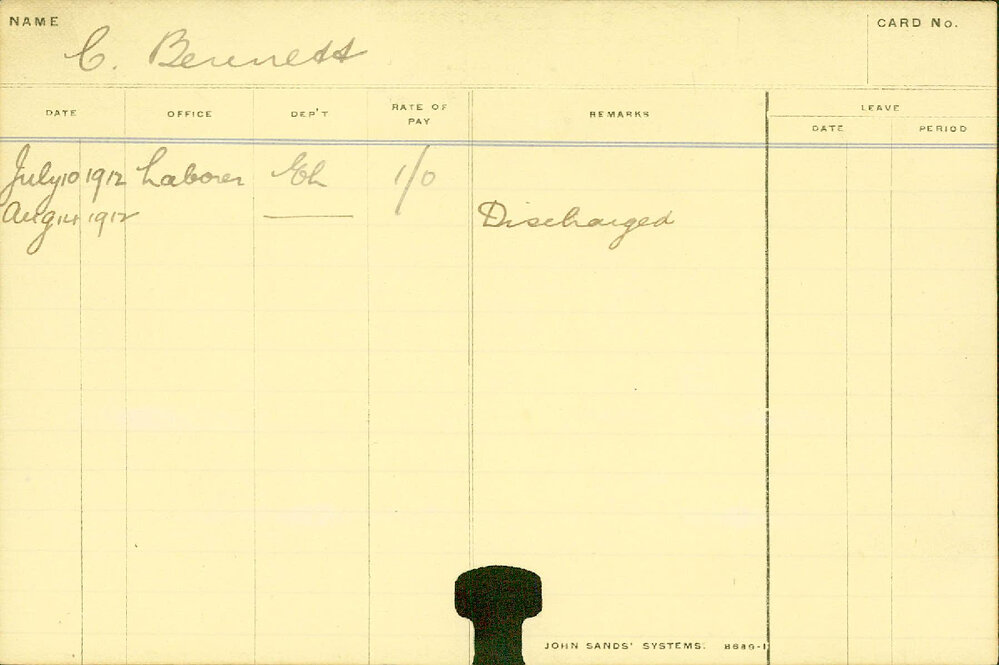 NAME CARD No.
C. Bennett
DATE OFFICE DEP'T RATE OF PAY REMARKS LEAVE
DATE PERIOD
July 10 1912 Laborer 1/0
Aug 14 1912 —— Discharged
JOHN SANDS' SYSTEMS.